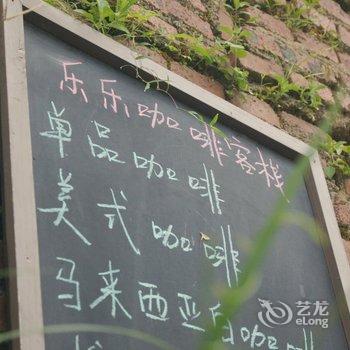 乐乐咖啡客栈
单品咖啡
美式咖啡
马来西亚白咖
艺龙
eLong.